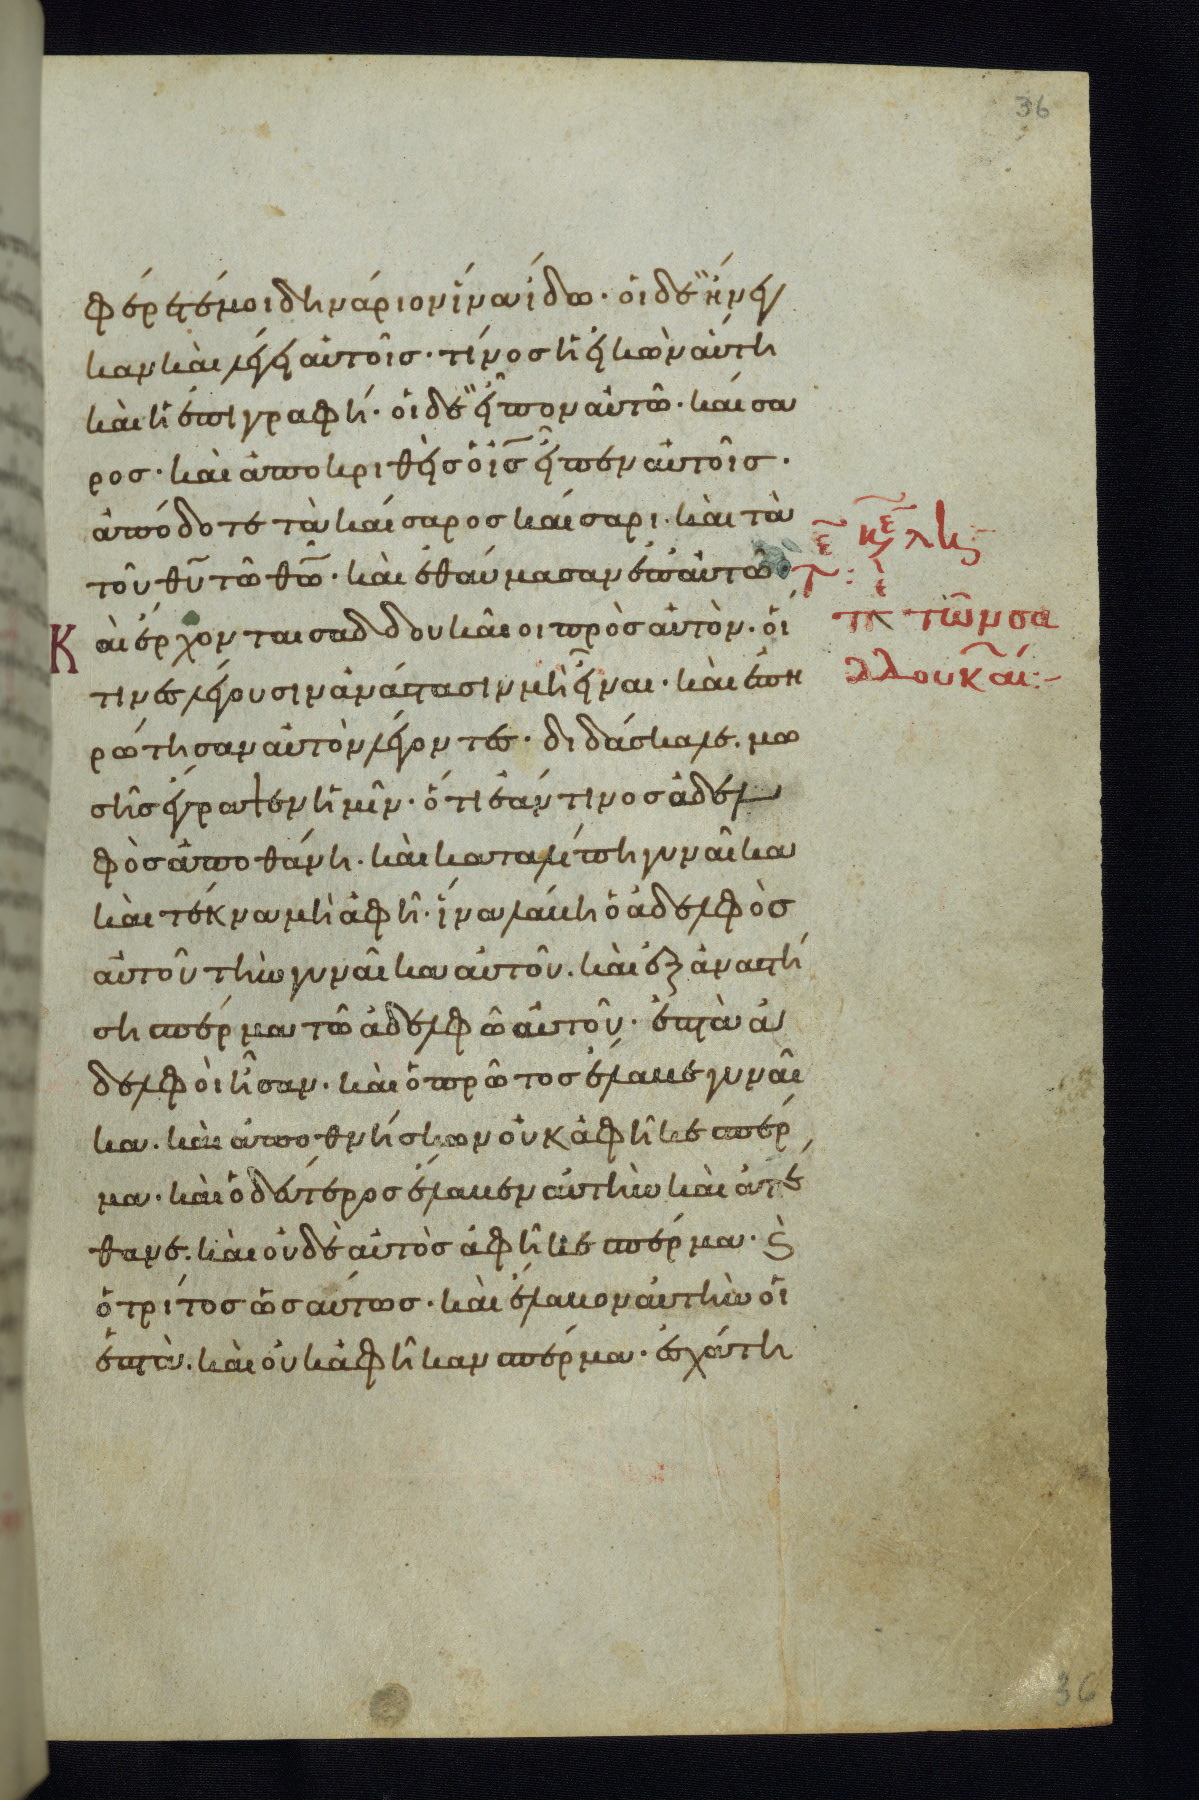 36
φέρετέ μοι δηνάριον ἵνα ἴδω· οἱ δὲ ἤνεγ
καν καὶ λέγει αὐτοῖς· τίνος ἡ εἰκὼν αὕτη
καὶ ἡ ἐπιγραφή· οἱ δὲ εἶπον αὐτῶ· καίσα
ρος· καὶ ἀποκριθεὶς ὁ ις εἶπεν αὐτοῖς·
ἀπόδοτε τὰ καίσαρος καίσαρι· καὶ τὰ
τοῦ θυ τῶ θω· καὶ ἐθαύμασαν ἐπ αὐτῶ
Καὶ ἔρχονται σαδδουκαῖοι πρὸς αὐτὸν· οἵ
τινες λέγουσιν ἀνάστασιν μὴ εἶναι· καὶ ἐπη
ρώτησαν αὐτὸν λέγοντες· διδάσκαλε. μω
σῆς ἔγραψεν ἡμῖν· ὅτι ἐάν τινος ἀδελ
φὸς ἀποθάνη· καὶ καταλείπη γυναῖκα
καὶ τέκνα μὴ ἀφῆ· ἵνα λάβη ὁ ἀδελφὸς
αὐτοῦ τὴν γυναῖκα αὐτοῦ. καὶ ἐξαναστή
ση σπέρμα τῶ ἀδελφῶ αὐτοῦ· ἑπτὰ ἀ
δελφοὶ ἦσαν· καὶ ὁ πρῶτος ἔλαβε γυναῖ
κα. καὶ ἀποθνήσκων οὐκ ἀφῆκε σπέρ
μα· καὶ ὁ δεύτερος ἔλαβεν αὐτὴν καὶ ἀπέ
θανε. καὶ οὐδὲ αὐτὸς ἀφῆκε σπέρμα· ϛ
ὁ τρίτος ὡσαύτως· καὶ ἔλαβον αὐτὴν οἱ
ἑπτὰ. καὶ οὐκ ἀφῆκαν σπέρμα· ἐσχάτη
τῶν σα
δδουκαί:-
36